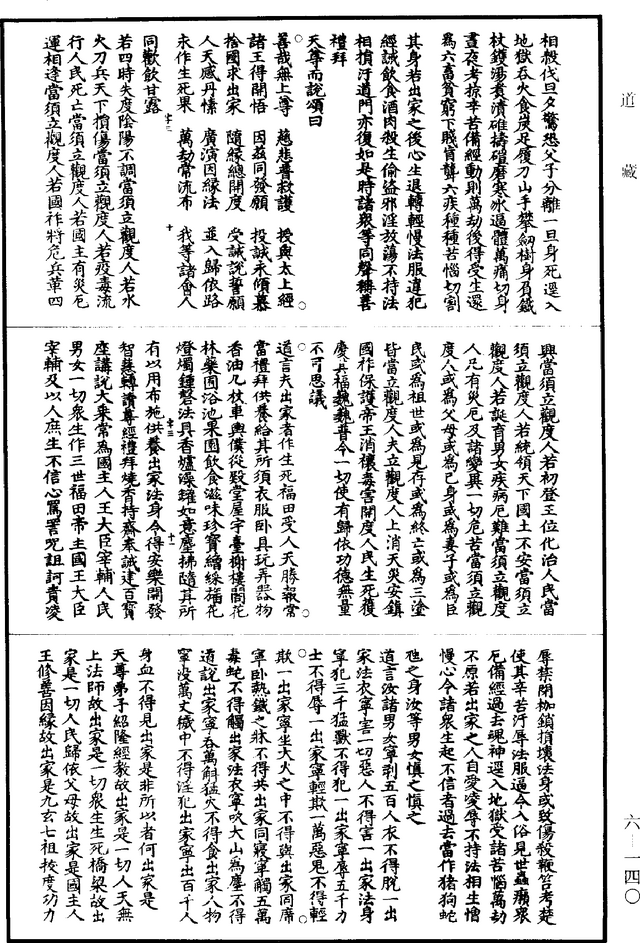 道藏
相殺伐旦夕驚恐父子分離一旦身死還入
地獄吞火食炭足履刀山手攀劍樹身負鐵
杖鑊湯煑漬碓擣磑磨寒冰遍體萬痛切身
晝夜考掠辛苦備經動則萬劫後得受生還
為六畜貧窮下賤盲聾六疾種種苦惱切割
其身若出家之後心生退轉輕慢法服違犯
經誡飲食酒肉殺生偷盜邪淫放蕩不持法
相損汙道門亦復如是時諸衆等同聲稱善
禮拜
天尊而說頌曰
善哉無上尊 慈悲普救護 授與太上經
諸王得開悟 因茲同發願 投誠永傾慕
捨國求出家 隨緣總開度 受誡說誓願
人天感丹愫 廣演因緣法 並入歸依路
永作生死果 萬劫常流布 我等諸會人
同歡飲甘露
若四時失度陰陽不調當須立觀度人若水
火刀兵天下損傷當須立觀度人若疫毒流
行人民死亡當須立觀度人若國主有災厄
運相逢當須立觀度人若國祚將危兵革四
興當須立觀度人若初登王位化治人民當
須立觀度人若統領天下國土不安當須立
觀度人若誕育男女疾病厄難當須立觀度
人凡有災厄及諸變異一切危苦當須立觀
度人或為父母或為己身或為妻子或為臣
民或為祖世或為見存或為終亡或為三塗
皆當立觀度人夫立觀度人上消天災安鎮
國祚保護帝王消禳毒害開度人民生死獲
慶其福巍巍普令一切使有歸依功德無量
不可思議
道言夫出家者作生死福田受人天勝報常
當禮拜供養給其所須衣服卧具玩弄器物
香油几杖車輿僕從殿堂屋宇臺榭樓閣花
林藥園浴池果園飲食滋味珍寶繒綵旛花
燈燭鍾磬法具香爐澡罐如意麈拂隨其所
有以用布施供養出家法身令得安樂開發
智慧轉讀尊經禮拜燒香持齋奉誡建百寶
座講說大乘常為國主人王大臣宰輔人民
男女一切衆生作三世福田帝主國王大臣
宰輔及以人庶生不信心罵詈呪詛訶責淩
辱禁閉枷鎖損壞法身或致傷殺鞭笞考楚
使其辛苦汙辱法服逼令入俗見世蟲癩衆
厄備經過去魂神還入地獄受諸苦惱萬劫
不原若出家之人自愛憂辱不持法相生憎
慢心令諸衆生起不信者過去當作猪狗蛇
虺之身汝等男女慎之慎之
道言汝諸男女寧剥五百人衣不得脫一出
家法衣寧害一切惡人不得害一出家法身
寧犯三千猛獸不得犯一出家寧辱五千力
士不得辱一出家寧輕欺一萬惡鬼不得輕
欺一出家寧坐大火之中不得與出家同席
寧卧熱鐵之牀不得共出家同寢寧觸五萬
毒蛇不得觸出家法衣寧吹大山為塵不得
道說出家寧吞萬斛猛火不得食出家人物
寧没萬丈穢中不得淫犯出家寧出百千人
身血不得見出家是非所以者何出家是
天尊弟子紹隆經教故出家是一切人天無
上法師故出家是一切衆生生死橋梁故出
家是一切人民歸依父母故出家是國主人
王修善因緣故出家是九玄七祖拔度功力
六一一四〇